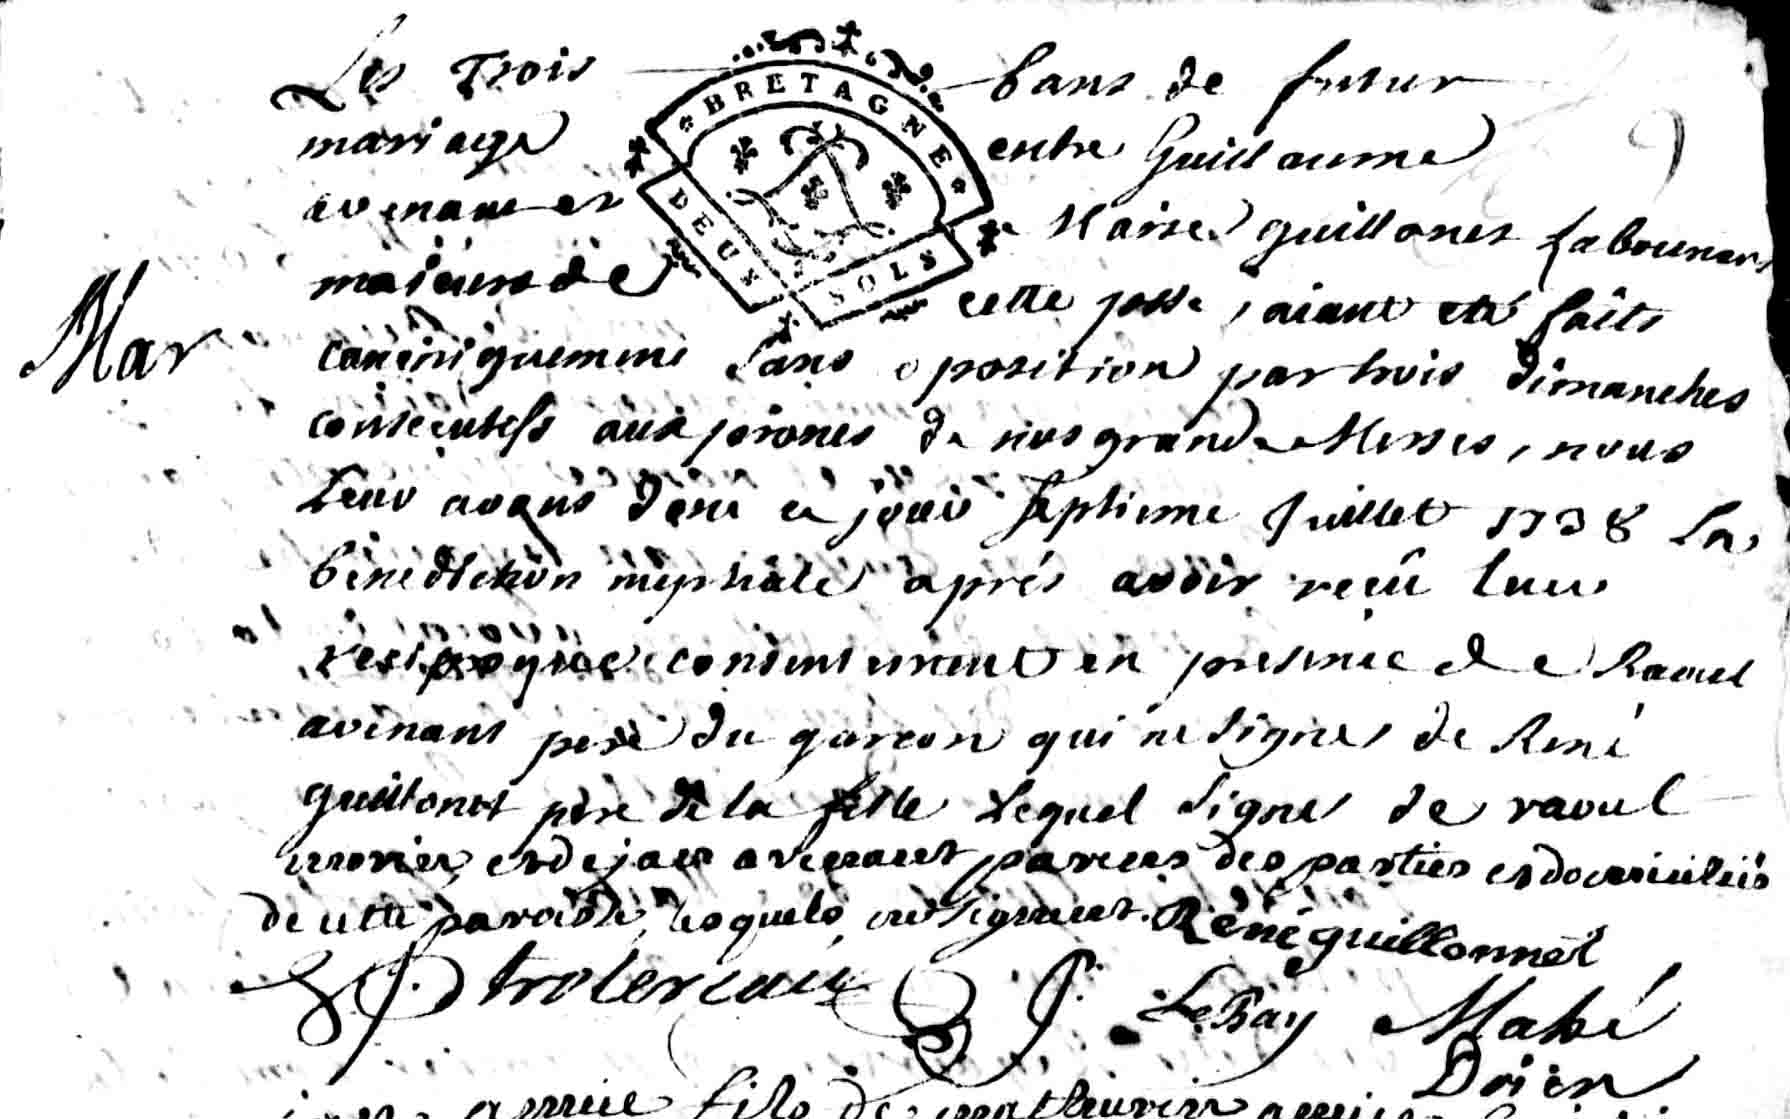 Les Trois bans de futur
mariage entre Guillaume
avenant et Guillonet Laboureurs
majeurs de cette psse, aiant eté faits
Mar
canoniquement sans oposition par trois dimanches
consecutifs aux prones de nos grandes Messes, nous
leur avons doné ce jour septieme Juillet 1738 La
benediction nuptiale après avoir reçû leur
consentement en presence de Raoul
avenant pere du garcon qui ne signe, de René
guillonet pere de la fille Lequel signe, de raoul
avenant parens des parties et domiciliés
de cette paroisse, lesquels ne signent. Réné guillonnet
LeRay Mahé
Doien
fils de mathurin
BRETAGNE
DEUX SOLS